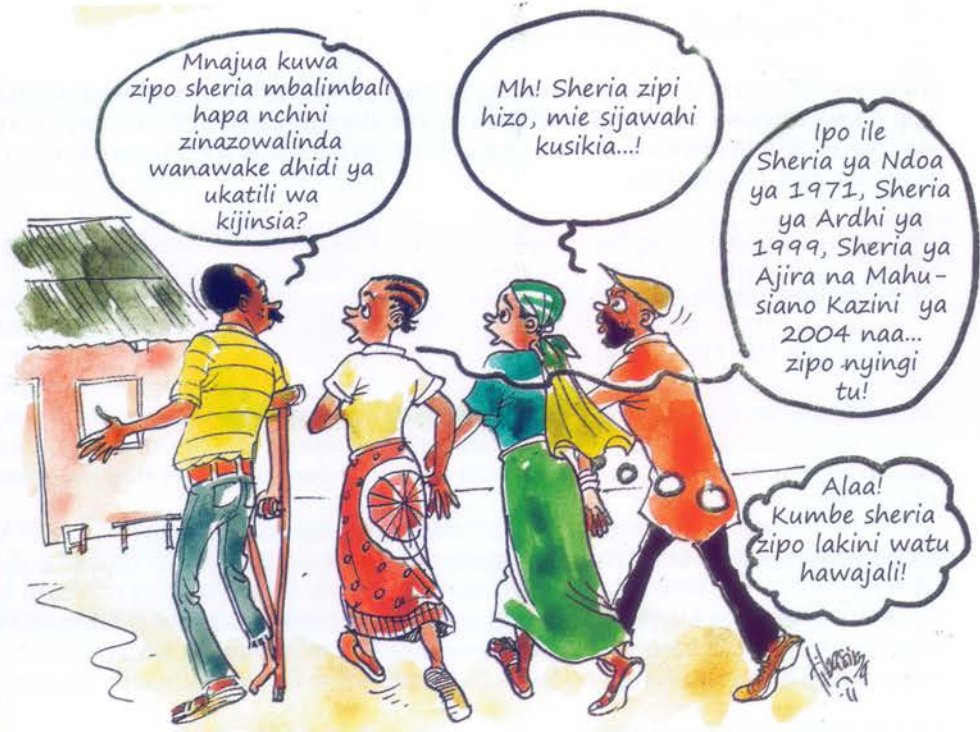 Mnajua kuwa
zipo sheria mbalimbali
hapa nchini
zinazowalinda
wanawake dhidi ya
ukatili wa
kijinsia?
Mh! Sheria zipi
hizo, mie sijawahi
kusikia...!
Ipo ile
Sheria ya Ndoa
ya 1971, Sheria
ya Ardhi ya
1999, Sheria ya
Ajira na Mahu-
siano Kazini ya
2004 naa...
zipo nyingi
tu!
Alaa!
Kumbe sheria
zipo lakini watu
hawajali!